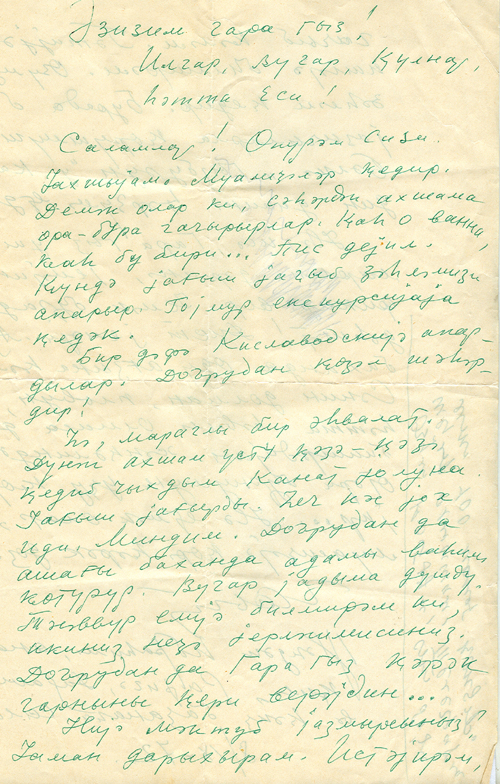 Әзизим гара гыз!
Илгар, Вугар, Ҝүлнар,
һәтта Еси!
Саламлар! Өпүрәм сизи.
Јахшыјам. Муаличәләр ҝедир.
Демәк олар ки, сәһәрдән ахшама
ора-бура гачырырлар. Ҝаһ о ванна,
ҝаһ бу бири... Пис дејил.
Күндә јағыш јағыб зәһләмизи
апарыр. Гојмур екскурсијаја
ҝедәк.
Бир дәфә Кисловодскијә апар-
дылар. Доғрудан ҝөзәл шәһәр-
дир!
Һә, мараглы бир әһвалат.
Дүнән ахшам үстү ҝәзә-ҝәзә
ҝедиб чыхдым Канат јолуна.
Јағыш јағырды. Һеч кәс јох
иди. Миндим. Доғрудан да
ашағы баханда адамы ваһимә
ҝөтүрүр. Вугар јадыма дүшдү.
Тәсәввүр елијә билмирәм ки,
икиниз неҹә јерләшмисиниз.
Доғрудан да Гара Гыз ҝәрәк
гарныны ҝери верәјдин...
Нијә мәктуб јазмырсыныз?
Јаман дарыхырам. Истәјирәм,